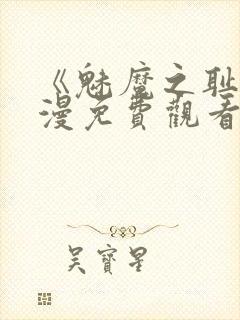 《魅魔之耻
漫免費觀看
吴寶星